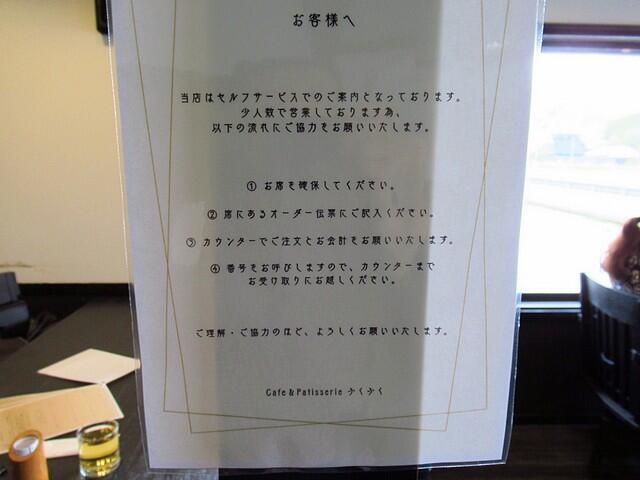 お客様へ
当店はセルフサービスでのご案内となっております。
少人数で営業しております為、
以下の流れにご協力をお願いいたします。
① お席を確保してください。
② 席にあるオーダー伝票にご記入ください。
③ カウンターでご注文とお会計をお願いいたします。
④ 番号をお呼びしますので、カウンターまで
お受け取りにお越しください。
ご理解・ご協力のほど、よろしくお願いいたします。
Cafe & Patisserie ふくふく